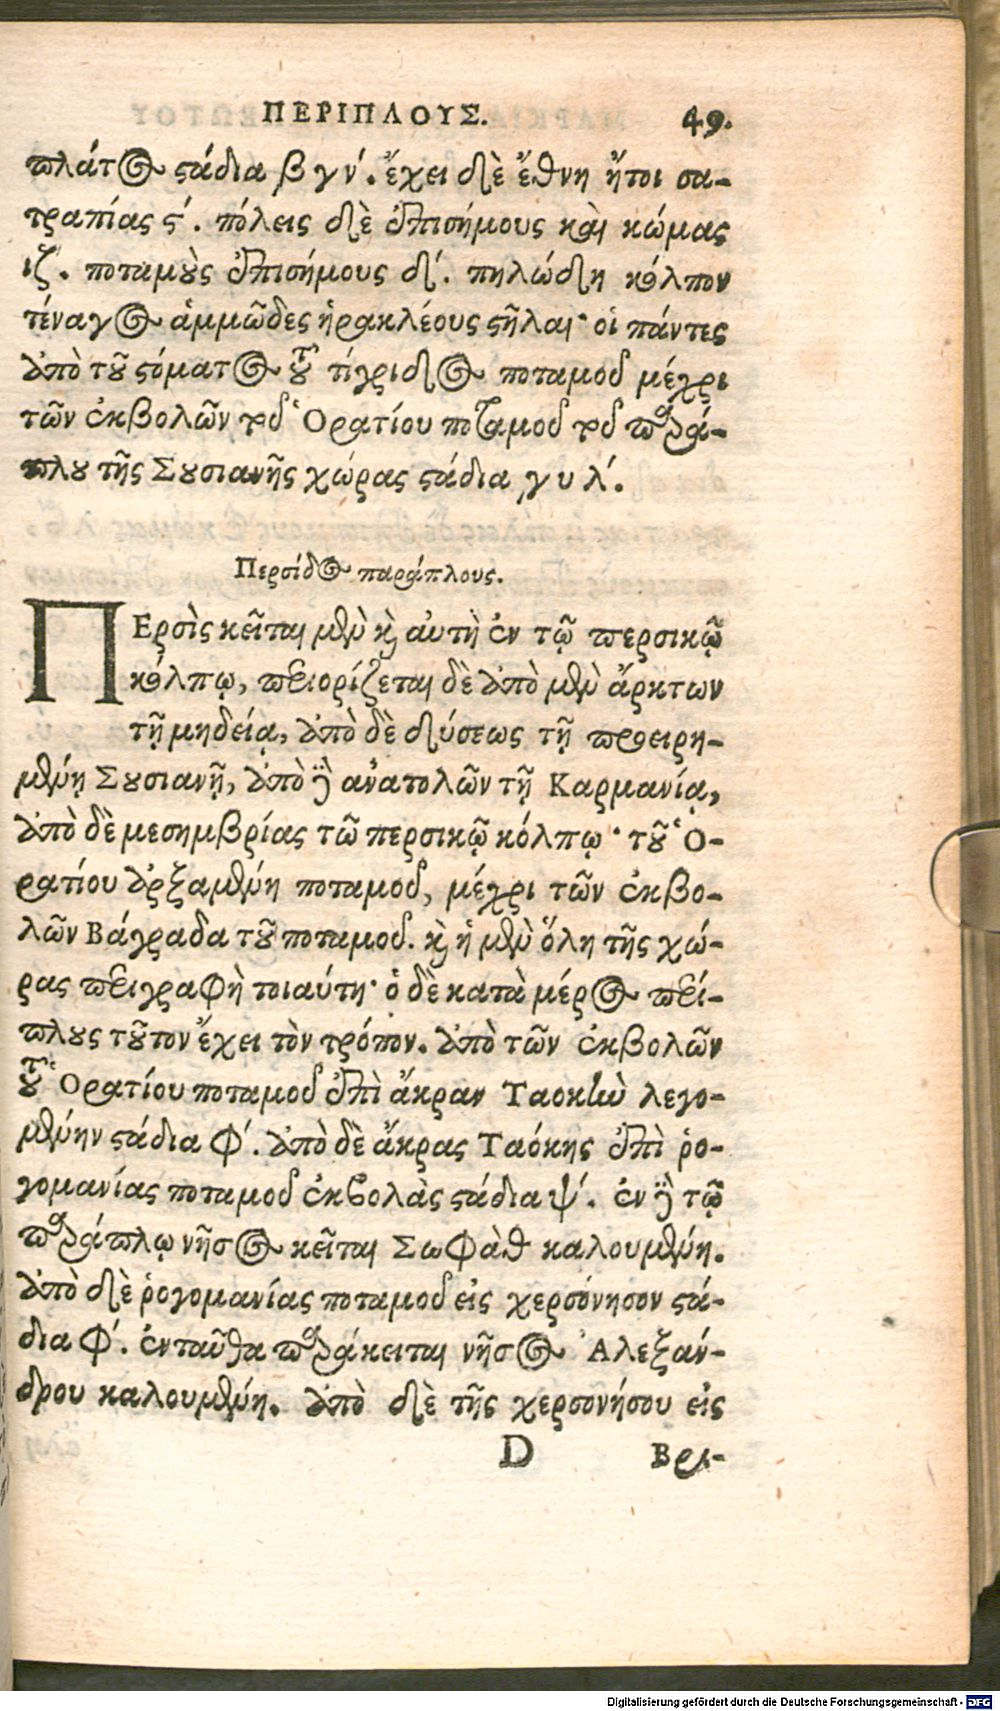 ΠΕΡΙΠΛΟΥΣ. 49.
πλάτος στάδια βγν΄. ἔχει δὲ ἔθνη ἤτοι σα-
τραπίας ϛ΄. πόλεις δὲ ἐπισήμους καὶ κώμας
ιζ΄. ποταμοὺς ἐπισήμους δ΄. πηλώδη κόλπον
τέναγος ἀμμῶδες ἡρακλέους στῆλαι· οἱ πάντες
ἀπὸ τοῦ στόματος τοῦ τίγριδος ποταμοῦ μέχρι
τῶν ἐκβολῶν τοῦ Ὁρατίου ποταμοῦ τοῦ παρά-
πλου τῆς Σουσιανῆς χώρας στάδια ͵γυλ΄.
Περσίδος παράπλους.
ΠΕρσὶς κεῖται μὲν καὶ αὐτὴ ἐν τῷ περσικῷ
κόλπῳ, περιορίζεται δὲ ἀπὸ μὲν ἄρκτων
τῇ μηδείᾳ, ἀπὸ δὲ δύσεως τῇ προειρη-
μένῃ Σουσιανῇ, ἀπὸ δὲ ἀνατολῶν τῇ Καρμανίᾳ,
ἀπὸ δὲ μεσημβρίας τῶ περσικῷ κόλπῳ· τοῦ Ὁ-
ρατίου ἀρξαμένη ποταμοῦ, μέχρι τῶν ἐκβο-
λῶν Βάγραδα τοῦ ποταμοῦ. καὶ ἡ μὲν ὅλη τῆς χώ-
ρας περιγραφὴ τοιαύτη· ὁ δὲ κατὰ μέρος περί-
πλους τοῦτον ἔχει τὸν τρόπον. ἀπὸ τῶν ἐκβολῶν
τοῦ Ὁρατίου ποταμοῦ ἐπὶ ἄκραν Ταοκὴν λεγο-
μένην στάδια φ΄. ἀπὸ δὲ ἄκρας Ταόκης ἐπὶ ῥο-
γομανίας ποταμοῦ ἐκβολὰς στάδια ψ΄. ἐν δὲ τῷ
παράπλῳ νῆσος κεῖται Σωφὰθ καλουμένη.
ἀπὸ δὲ ῥογομανίας ποταμοῦ εἰς χερσόνησον στά-
δια φ΄. ἐνταῦθα παράκειται νῆσος Ἀλεξάν-
δρου καλουμένη. ἀπὸ δὲ τῆς χερσονήσου εἰς
D Βρι-
Digitalisierung gefördert durch die Deutsche Forschungsgemeinschaft - DFG